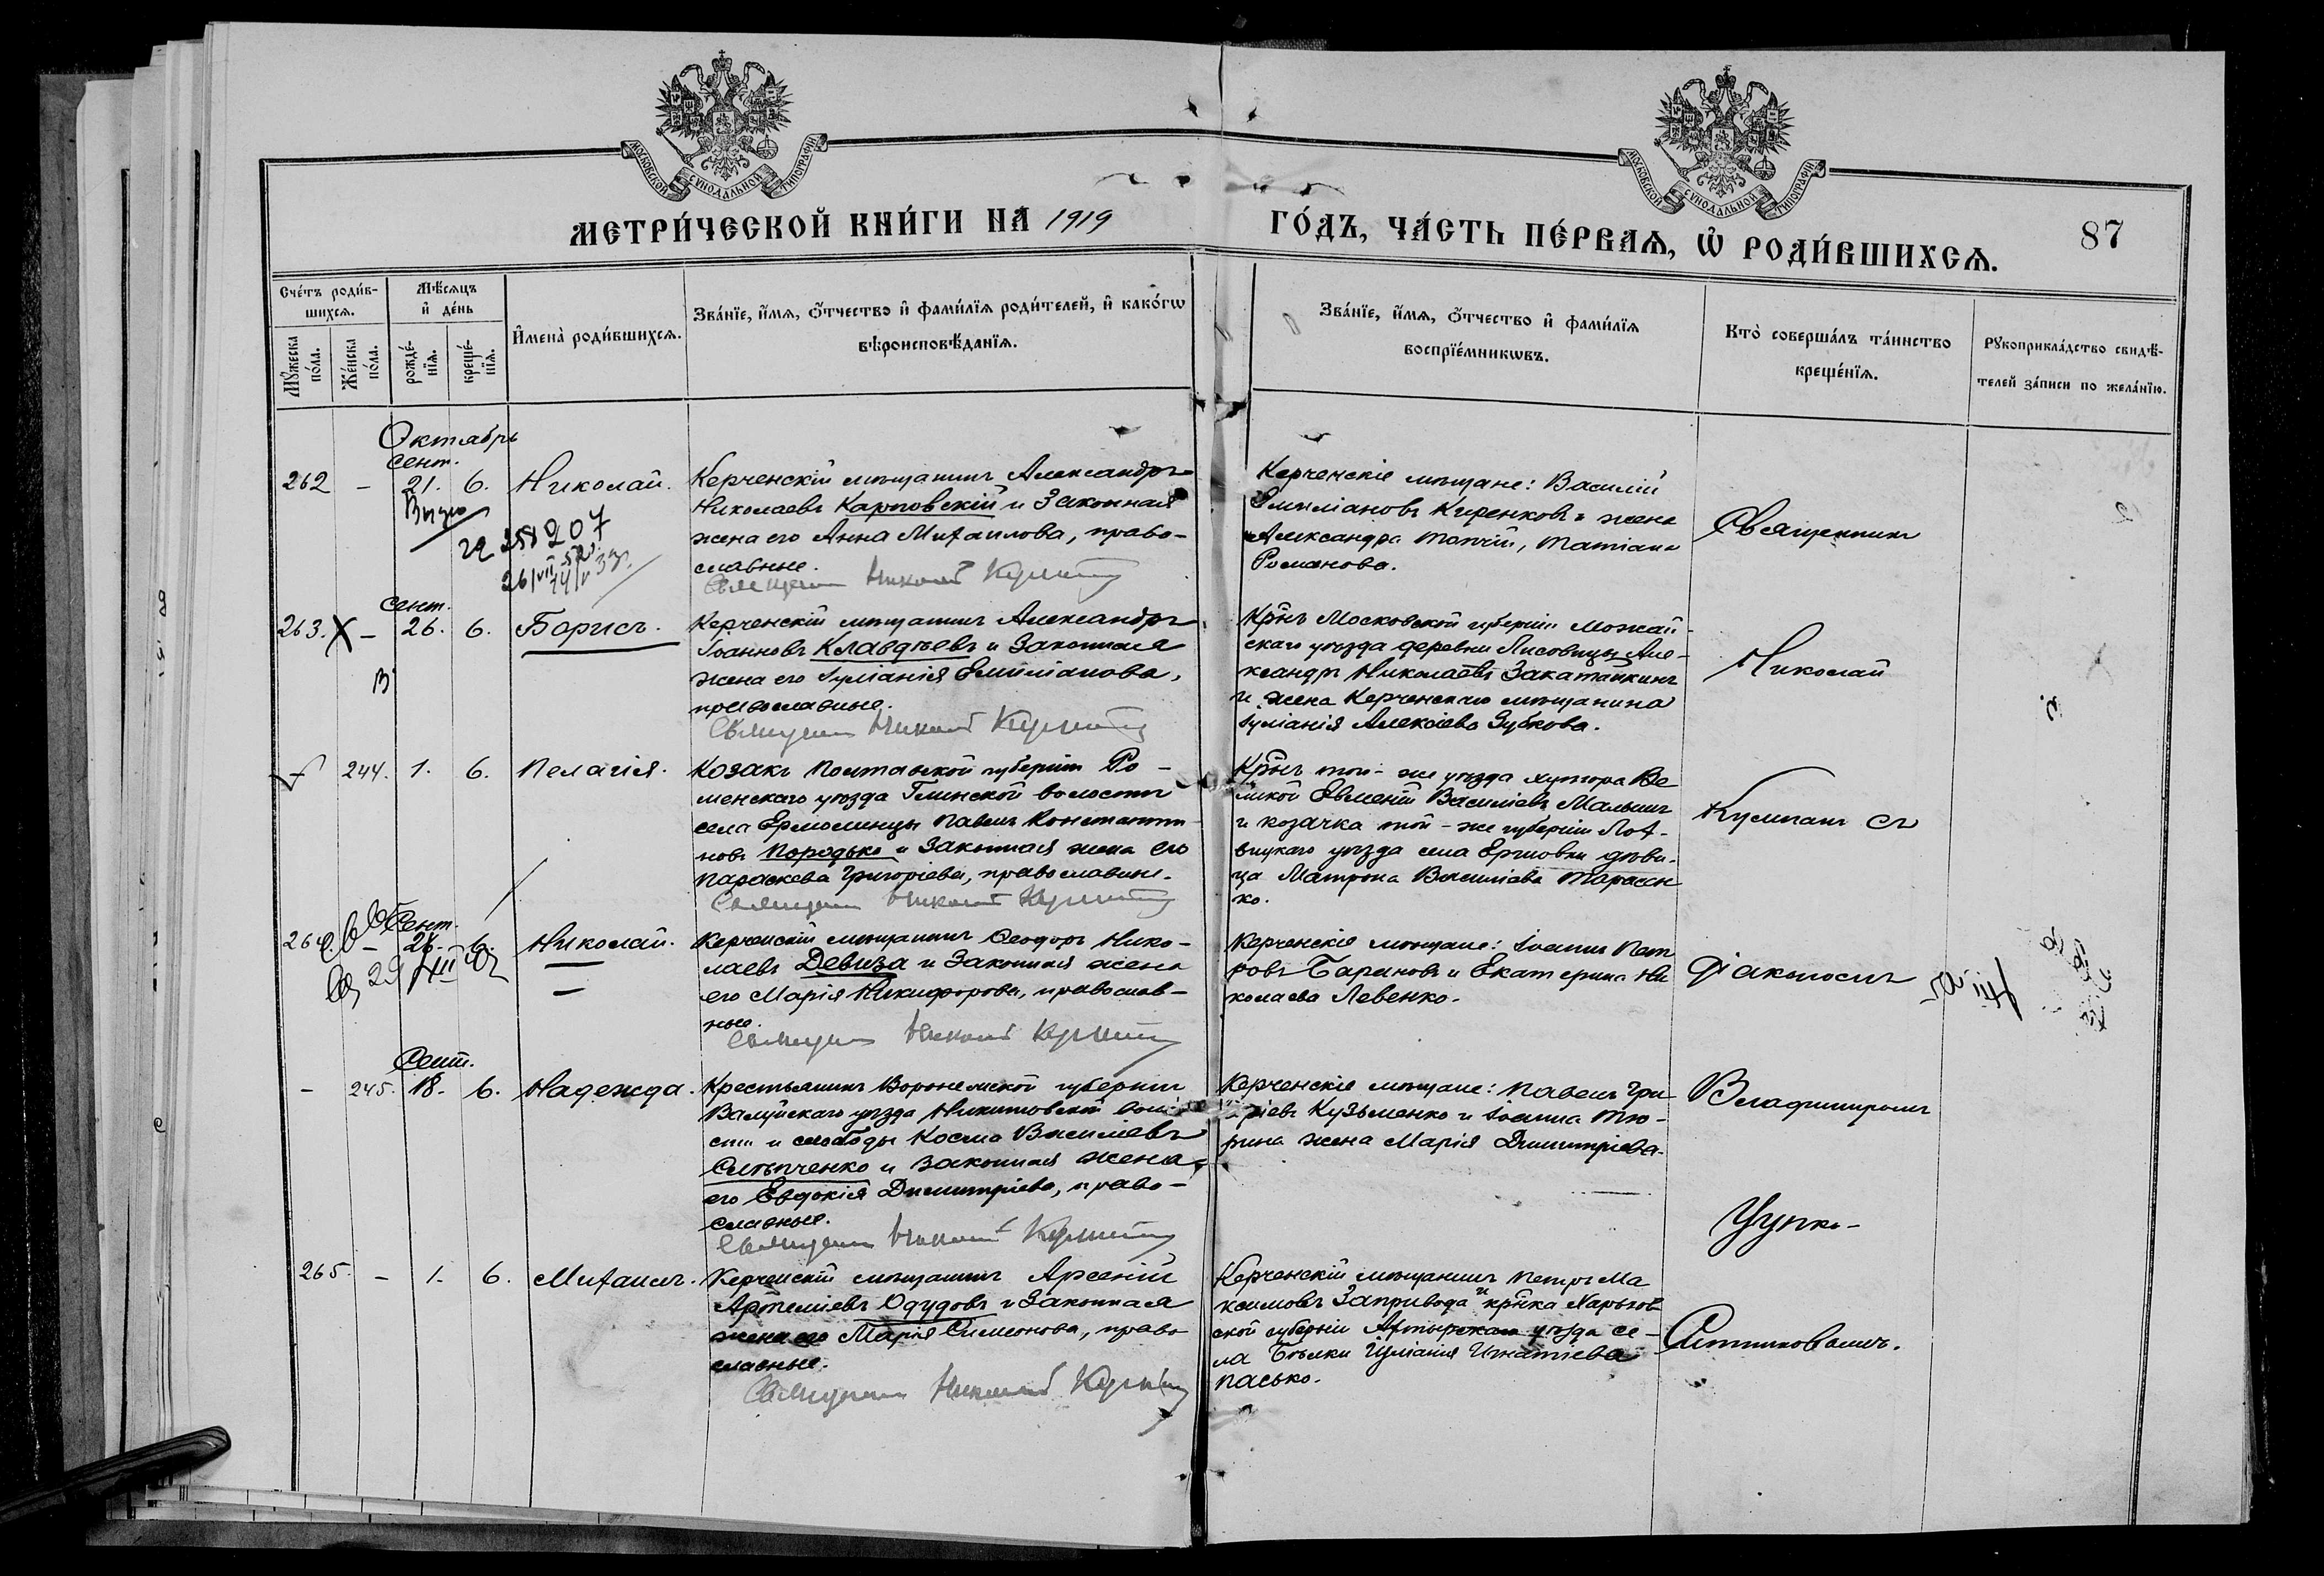 МОСКОВСКОЙ СѴНОДАЛЬНОЙ ТИПОГРАФІИ
МОСКОВСКОЙ СѴНОДАЛЬНОЙ ТИПОГРАФІИ
МЕТРИ́ЧЕСКОЙ КНИ́ГИ НА 1919
ГО́ДЪ, ЧА́СТЬ ПЕ́РВАѦ, Ѡ РОДИ́ВШИХСѦ.
87
Сче́тъ роди́в-
шихсѧ.
Мѣ́сѧцъ
и҆ де́нь
Мꙋ́жеска
по́ла.
Же́нска
по́ла.
рожде́-
нїѧ.
креще́-
нїѧ.
И҆мена̀ роди́вшихсѧ.
Зва́нїе, и҆́мѧ, ѻ҆́тчество и҆ фами́лїѧ роди́телей, и҆ како́гѡ
вѣроисповѣ́данїѧ.
Зва́нїе, и҆́мѧ, ѻ҆́тчество и҆ фами́лїѧ
воспрїе́мникѡвъ.
Кто̀ соверша́лъ та́инство
креще́нїѧ.
Рꙋкоприкла́дство свидѣ́-
телей за́писи по жела́нїю.
Октябрь
сент.
262 - 21. 6. Николай.
Керченскій мѣщанинъ Александръ
Николаевъ Карповскій и законная
жена его Анна Михаилова, право-
славные.
Священникъ Николай
Керченскіе мѣщане: Василій
Емиліановъ Киренковъ и жена
Александра Топчій, Татіана
Романова.
Священникъ
сент.
263. X - 26. 6. Борисъ.
Керченскій мѣщанинъ Александръ
Іоанновъ Клавдіевъ и законная
жена его Іуліанія Емиліанова,
православные.
Священникъ Николай
Кр-нъ Московской губерніи Можай-
скаго уѣзда деревни Лисовицы Але-
ксандръ Николаевъ Закатайкинъ
и жена Керченскаго мѣщанина
Іуліанія Алексіева Зубкова.
Николай
244. 1. 6. Пелагія.
Козакъ Полтавской губерніи Ро-
менскаго уѣзда Глинской волости
села Ермолинцы Павелъ Константи-
новъ Породько и законная жена его
Параскева Григоріева, православные.
Священникъ Николай
Кр-нъ той-же уѣзда хутора Ве
ликой Евменій Василіевъ Малышъ
и козачка той-же губерніи Лох-
вицкаго уѣзда села Ермовки дѣви-
ца Матрона Василіева Тарасен
ко.
сент.
264. - 26. 6. Николай.
Керченскій мѣщанинъ Ѳеодоръ Нико-
лаевъ Девиза и законная жена
его Марія Никифорова, православ-
ные.
Священникъ Николай
Керченскіе мѣщане: Іоаннъ Пет
ровъ Бариновъ и Екатерина Ни
колаева Левенко.
Діакономъ
Сент.
- 245. 18. 6. Надежда.
Крестьянинъ Воронежской губерніи
Валуйскаго уѣзда Никитовской воло
сти и слободы Косма Василіевъ
Слѣпченко и законная жена
его Евдокія Димитріева, право-
славные.
Священникъ Николай
Керченскіе мѣщане: Павелъ Гри
горіевъ Кузьменко и Іоанна Тю-
рина жена Марія Димитріева.
Владимиромъ
265. - 1. 6. Михаилъ.
Керченскій мѣщанинъ Арсеній
Артеміевъ Одудовъ и законная
жена его Марія Симеонова, право
славные.
Священникъ Николай
Керченскій мѣщанинъ Петръ Ма
ксимовъ Запривода и кр-нка Харьков
ской губерніи Ахтырскаго уѣзда се-
ла Бѣлки Іуліанія Игнатіева
Пасько.